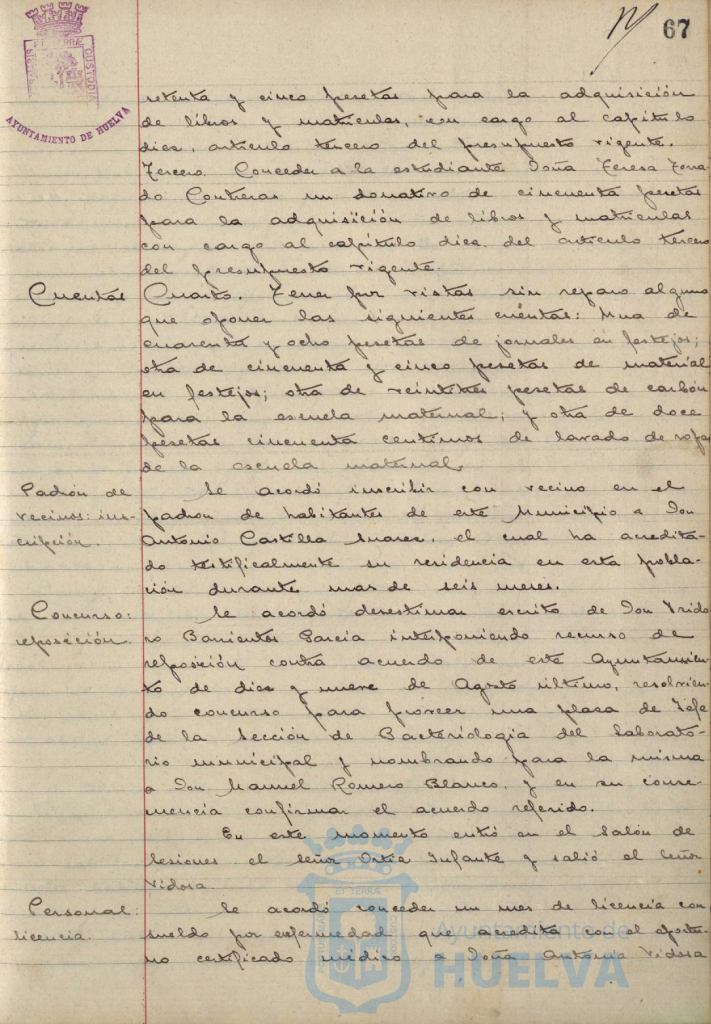 67
PORTUS MARIS ET TERRÆ CUSTODIA
AYUNTAMIENTO DE HUELVA
tenta y cinco pesetas para la adquisición
de libros y matriculas, con cargo al capítulo
diez, articulo tercero del presupuesto vigente.
Tercero. Conceder a la estudiante Doña Teresa
do Contreras un donativo de cincuenta pesetas
para la adquisición de libros y matriculas
con cargo al capítulo diez del articulo tercero
del presupuesto vigente.
Cuentas
Cuarto. Tener por vistas sin reparo alguno
que oponer las siguientes cuentas: Una de
cuarenta y ocho pesetas de jornales en festejos;
otra de cincuenta y cinco pesetas de material
en festejos; otra de veintitres pesetas de carbón
para la escuela maternal; y otra de doce
pesetas cincuenta centimos de lavado de ropa
de la escuela maternal.
Padrón de
vecinos: ins-
cripción.
Se acordó inscribir con vecino en el
padron de habitantes de este Municipio a Don
Antonio Castilla Suarez, el cual ha acredita-
do testificalmente su residencia en esta pobla-
ción durante mas de seis meses.
Concurso:
reposición.
Se acordó desestimar escrito de Don Ysido
ro Barrientos Garcia interponiendo recurso de
reposición contra acuerdo de este Ayuntamien-
to de diez y nueve de Agosto ultimo, resolvien-
do concurso para proveer una plaza de Jefe
de la Sección de Bacteriologia del Laborato-
rio municipal y nombrando para la misma
a Don Manuel Romero Blanco, y en su conse-
cuencia confirmar el acuerdo referido.
En este momento entró en el Salón de
Sesiones el Señor Ortiz Infante y salió el Señor
Vidosa.
Personal:
licencia.
Se acordó conceder un mes de licencia con
sueldo por enfermedad que acredita con el oportu-
no certificado médico a Doña Antonia Vidosa
Ayuntamiento de
HUELVA